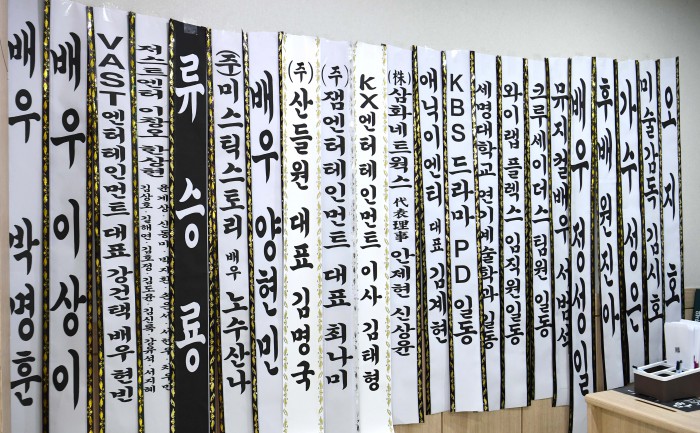 배우 박명훈
배우 이상이
VAST엔터테인먼트 대표 강건택 배우 현빈
저스트엔터 이창오 한상현
윤계상 신동미 박지환
김상호·김해연·김호정·김도윤·김신록·강유석·서지혜
류승룡
(주)미스틱스토리 배우 노수산나
배우 양현빈
(주)산들원 대표 김명국
(주)잼엔터테인먼트 대표 최나미
KX엔터테인먼트 이사 김태형
(株)삼화네트웍스 代表理事 안제현 신상윤
애닉이엔티 대표 김계현
KBS 드라마 PD 일동
세명대학교 연기예술학과 일동
와이랩 플렉스 임직원일동
크루세이더스 팀원 일동
뮤지컬배우 서범석
배우 정성일
후배 원진아
가수 성운
미술감독 김시호
오지호